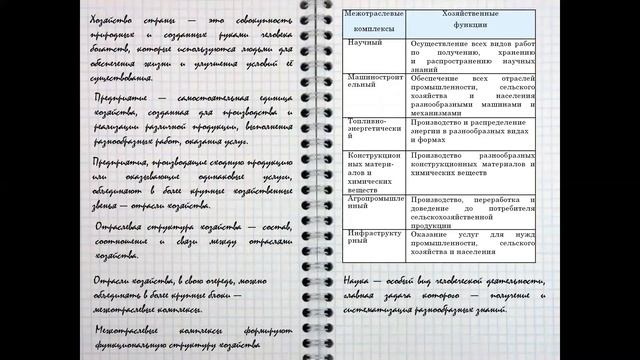 Хозяйство страны — это совокупность
природных и созданных руками человека
богатств, которые используются людьми для
обеспечения жизни и улучшения условий её
существования.
Предприятие — самостоятельная единица
хозяйства, созданная для производства и
реализации различной продукции, выполнения
разнообразных работ, оказания услуг.
Предприятия, производящие сходную продукцию
или оказывающие одинаковые услуги,
объединяют в более крупные хозяйственные
звенья — отрасли хозяйства.
Отраслевая структура хозяйства — состав,
соотношение и связи между отраслями
хозяйства.
Отрасли хозяйства, в свою очередь, можно
объединять в более крупные блоки —
межотраслевые комплексы.
Межотраслевые комплексы формируют
функциональную структуру хозяйства
Межотраслевые
комплексы
Хозяйственные
функции
Научный
Осуществление всех видов работ
по получению, хранению
и распространению научных
знаний
Машиностроит
ельный
Обеспечение всех отраслей
промышленности, сельского
хозяйства и населения
разнообразными машинами и
механизмами
Топливно-
энергетически
й
Производство и распределение
энергии в разнообразных видах
и формах
Конструкцион
ных матери-
алов и
химических
веществ
Производство разнообразных
конструкционных материалов и
химических веществ
Агропромышле
нный
Производство, переработка и
доведение до потребителя
сельскохозяйственной
продукции
Инфраструкту
рный
Оказание услуг для нужд
промышленности, сельского
хозяйства и населения
Наука — особый вид человеческой деятельности,
главная задача которого — получение и
систематизация разнообразных знаний.